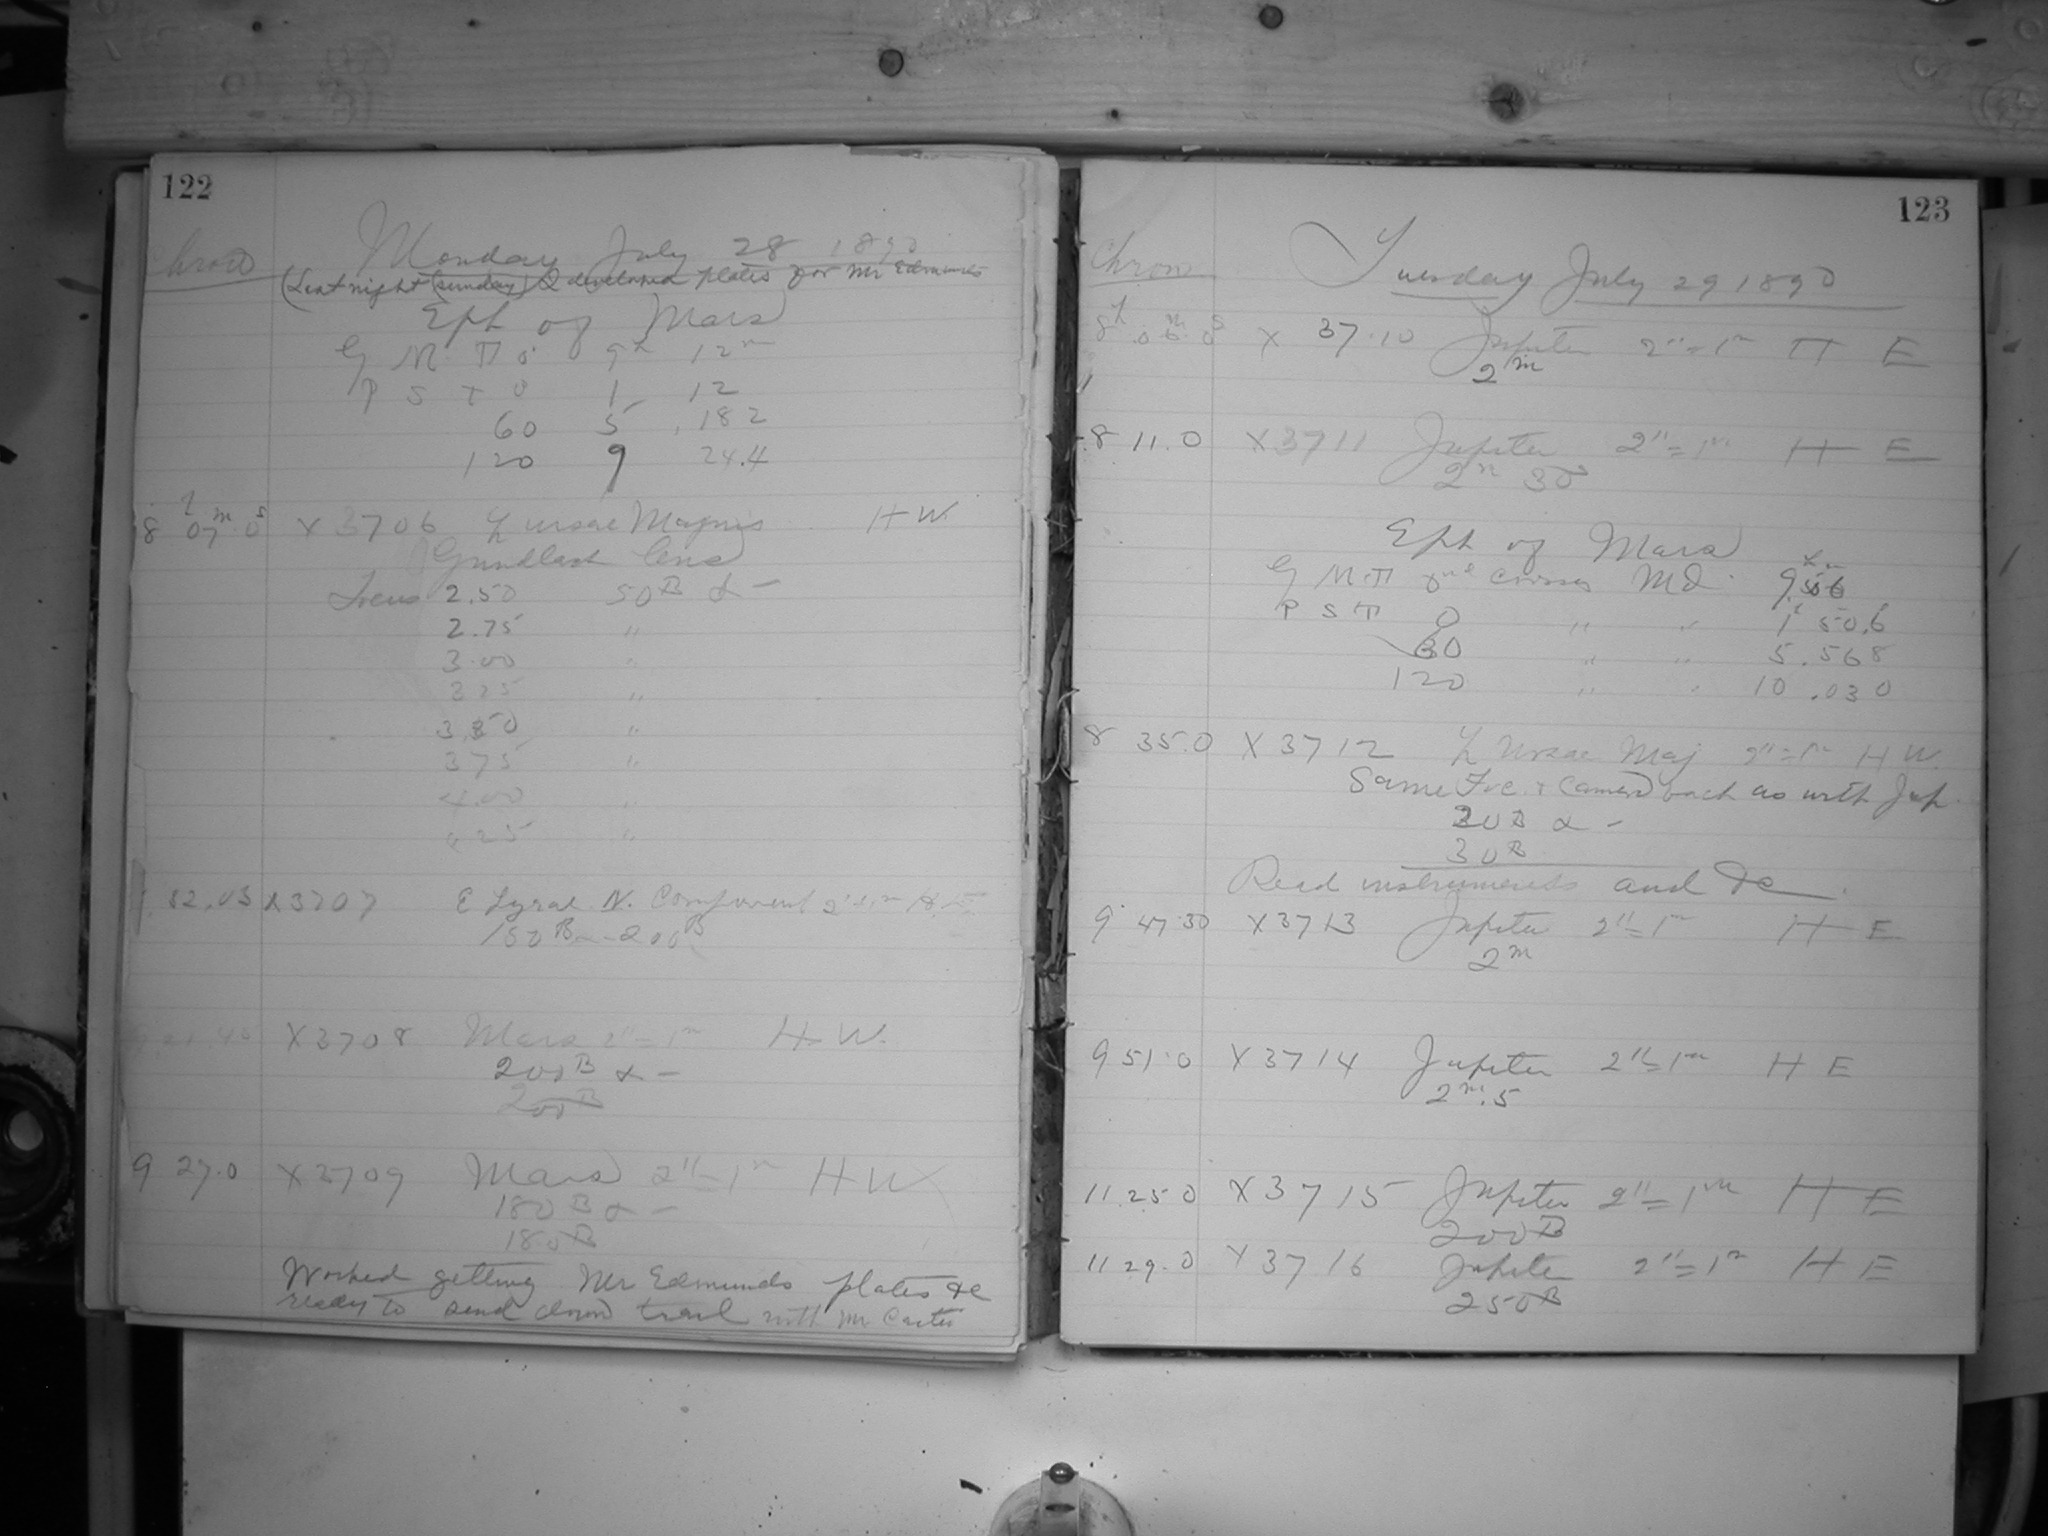 122
Chron Monday July 28 1890
(Last night (Sunday) I developed plates for Mr Edmunds
Eph of Mars
G M T 0 9h 12m
P S T 0 1 12
60 5 .182
120 9 24.4
8h 07m 0s X3706 ζ Ursae Majoris H W.
Gundlach lens
Focus 2.50 50B α -
2.75 "
3.00 "
3.25 "
3.50 "
3.75 "
4.00 "
4.25 "
52.03 X3707 ε Lyrae N. Component 2"=1m
150B - 200B
X3708 Mars 2"=1m H W.
200B α -
200B
9 27.0 X3709 Mars 2"=1m H W
180B α -
180B
Worked getting Mr Edmunds plates &c
ready to send down trail with Mr Carter
123
Chron Tuesday July 29 1890
8h .06m.0s X 37.10 Jupiter 2"=1m H E
2m
8 11.0 X3711 Jupiter 2"=1m H E
2m 30s
Eph of Mars
G M.T Md. 9
P S T 0 " " 1h 50.6
60 " " 5.568
120 " " 10.030
8 35.0 X3712 ζ Ursae Maj 2"=1m H W.
Same Foc. & Camera back as with Jup.
20B α -
30B
Read instruments and &c
9 47 30 X3713 Jupiter 2"=1m H E
2m
9 51.0 X3714 Jupiter 2"=1m H E
2m.5
11.25 0 X3715 Jupiter 2"=1m H E
200B
11 29.0 X3716 Jupiter 2"=1m H E
250B